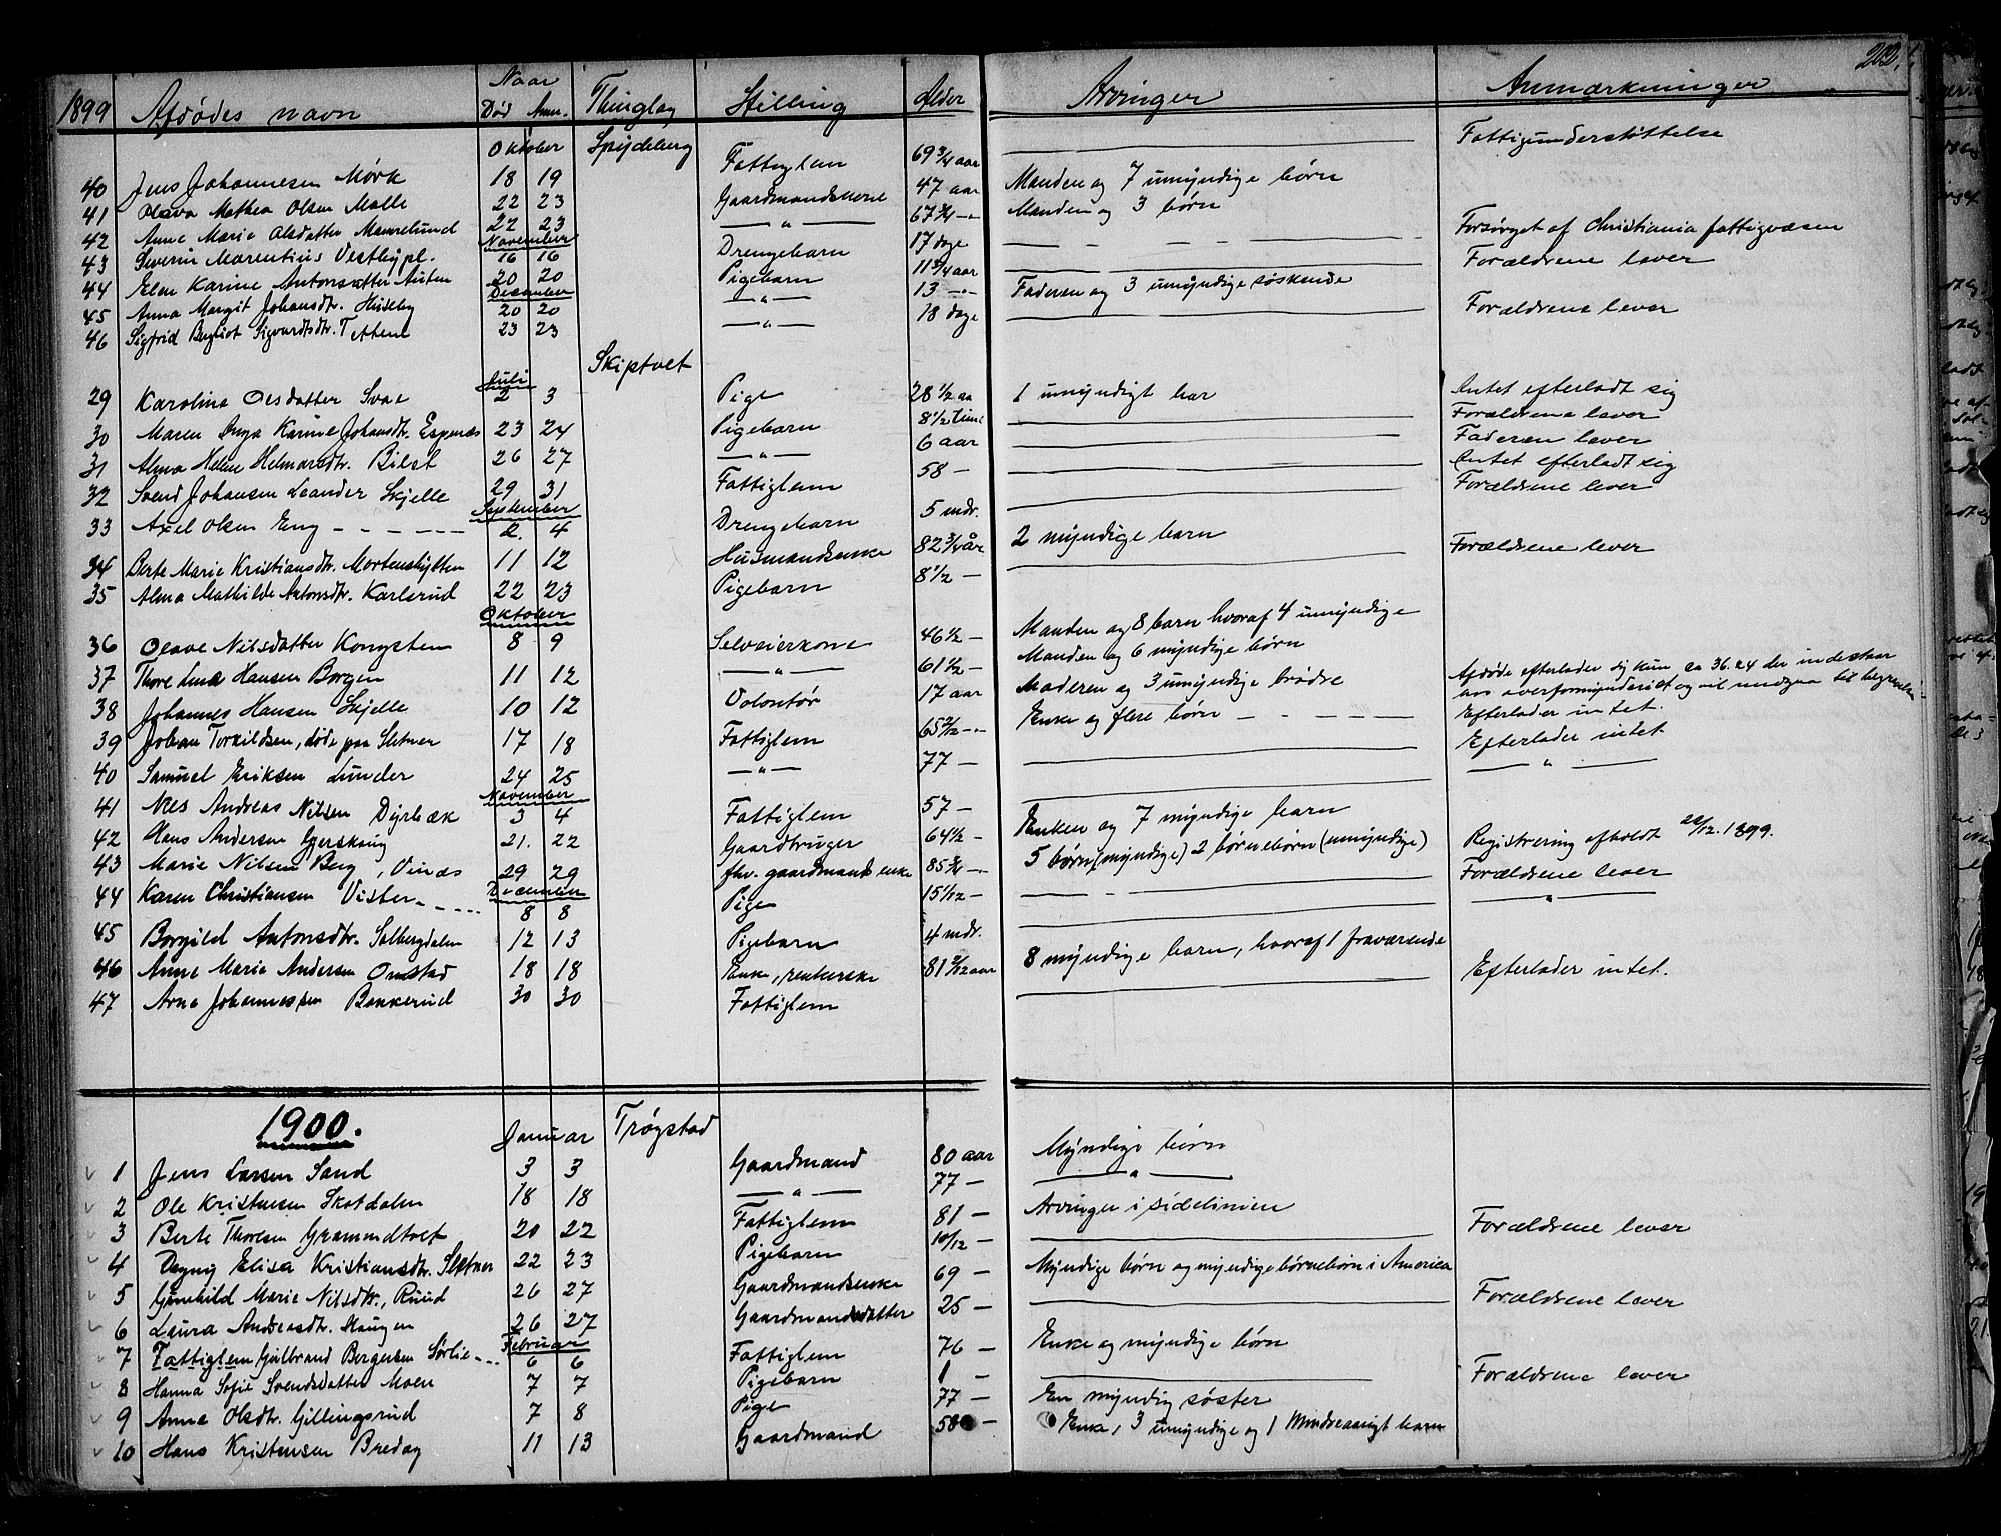 202.
1899 Afdødes navn Naar Død Anm. Thinglag Stilling Alder Arvinger Anmærkninger
Oktober Spydeberg
40 Jens Johannesen Mørk 18 19 Fattiglem 69 3/4 aar Fattigunderstøttelse
41 Olava Mathea Olsen Malle 22 23 Gaardmandskone 47 aar Manden og 7 umyndige børn
42 Anne Marie Olsdatter Maurelund 22 23 — " — 67 3/4 - " Manden og 3 børn
November
43 Severin Marentius Vestbypl. 16 16 Drengebarn 17 dage Forsørget af Christiania fattigvæsen
44 Elen Karine Antonsdatter Auten 20 20 Pigebarn 11 3/4 aar Forældrene lever
December
45 Anna Margit Johansdtr. Huseby 20 20 — " — 13 - " - Faderen og 3 umyndige søskende
46 Sigfrid Bergliot Sigvardtsdtr. Tetten 23 23 — " — 18 dage Forældrene lever
Skiptvet
Juli
29 Karoline Olsdatter Svae 2 3 Pige 28 1/2 aa 1 umyndigt bar Intet efterladt sig
30 Maren Inga Karine Johansdtr. Espenæs 23 24 Pigebarn 8 1/2 time Forældrene lever
31 Alma Helene Helmersdtr. Bilet 26 27 — " — 6 aar Faderen lever
32 Svend Johansen Leander Skjelle 29 31 Fattiglem 58 - Intet efterladt sig
September
33 Axel Olsen Eng - - - - - 2. 4 Drengebarn 5 mdr. Forældrene lever
34 Berte Marie Kristiansdtr. Mortenshytten 11 12 Husmandsenke 82 3/4 år 2 myndige barn
35 Alma Mathilde Antonsdtr. Karlsrud 22 23 Pigebarn 8 1/2 - Forældrene lever
Oktober
36 Olave Nilsdatter Kongsten 8 9 Selveierkone 46 1/2 - Manden og 8 barn hvoraf 4 umyndige
37 Thore Lina Hansen Borgen 11 12 — " — 61 1/2 - Manden og 6 myndige børn
38 Johannes Hansen Skjelle 10 12 Volontør 17 aar Moderen og 3 umyndige brødre Afdøde efterlader sig kun ca 36.24 der indestaar
hos overformynderiet og vil medgaa til begravelse.
39 Johan Torkildsen, døde paa Sletner 17 18 Fattiglem Enke og flere børn - - - - - Efterlader intet.
40 Samuel Eriksen Lunder 24 25 — " — 77 - Efterlader intet
November
41 Nils Andreas Nilsen Dyrbæk 3 4 Fattiglem 57 - — " —
42 Hans Andersen Gjerskaug 21. 22 Gaardbruger 64 1/2 - Enken og 7 myndige barn
43 Marie Nilsen Berg, Vinæs 29 29 fhv. gaardmands enke 85 3/4 - 5 børn (myndige) 2 børnebørn (umyndige) Registrering afholdt 22/12.1899.
December
44 Karen Christiansen Vister - - - - 8 8 Pige 15 1/12 - Forældrene lever
45 Borgild Antonsdtr. Solbergdalen 12 13 Pigebarn 4 mdr. "
46 Anne Marie Andersen Onstad 18 18 Enke, renterske 81 2/12 aar 8 myndige barn, hvoraf 1 fraværende
47 Arne Johannessen Bakkerud 30 30 Fattiglem Efterlader intet.
1900.
Januar Trøgstad
1 Jens Larsen Sand 3 3 Gaardmand 80 aar Myndige børn
2 Ole Kristensen Skotdalen 18 18 — " — 77 - — " —
3 Berte Thoresen Grammdtvet 20 22 Fattiglem 81 - Arvinger i sidelinien
4 Dagny Elise Kristiansdtr. Sletner 22 23 Pigebarn 10/12 - Forældrene lever
5 Gunhild Marie Nilsdtr., Ruud 26 27 Gaardmandsenke 69 - Myndige børn og myndige børnebørn i America
6 Laura Andreasdtr. Haugen 26 27 Gaardmandsdatter 25 - Forældrene lever
Februar
7 Fattiglem Gulbrand Bergersen Sørlie - - - 6 6 Fattiglem 76 - Enke og myndige børn
8 Hanna Sofie Svendsdatter Moen 7 7 Pigebarn 1 - Forældrene lever
9 Anne Olsdtr. Gillingsrud 7 8 Pige 77 - En myndig søster
10 Hans Kristensen Bredag 11 13 Gaardmand 58 - Enke, 3 umyndige og 1 Mindreaarigt barn